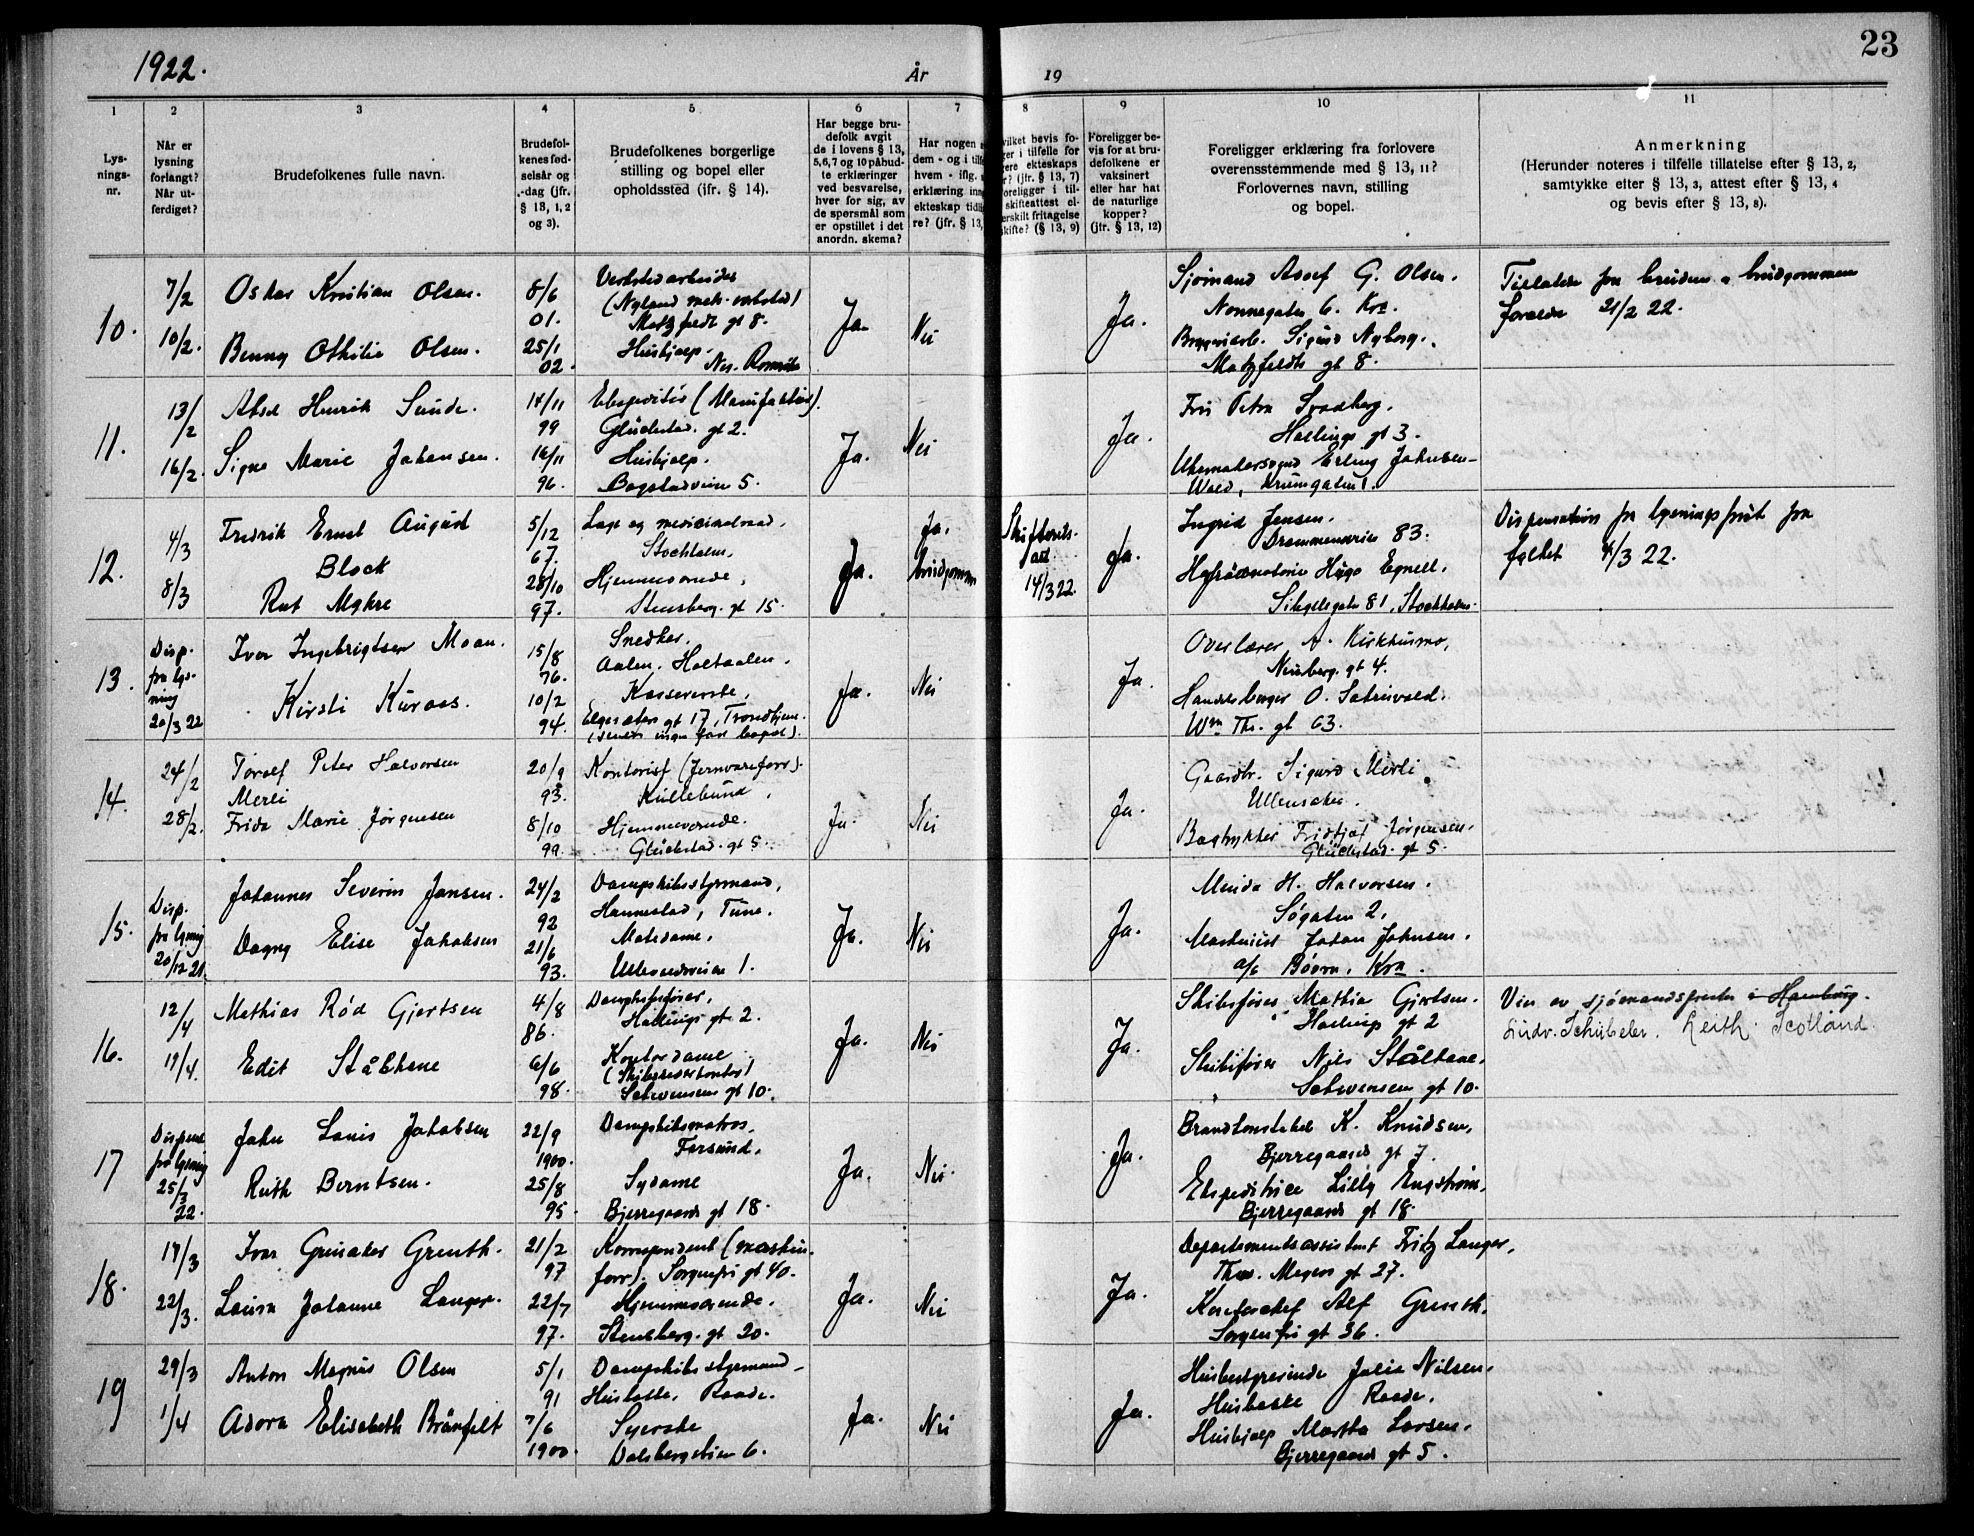 1922.
År
19
23
1
2
3
4
5
6
7
8
9
10
11
Lys-
nings-
nr.
Når er
lysning
forlangt?
Når ut-
ferdiget?
Brudefolkenes fulle navn.
Brudefol-
kenes fød-
selsår og
-dag (jfr.
§ 13, 1, 2
og 3).
Brudefolkenes borgerlige
stilling og bopel eller
opholdssted (ifr. § 14).
Har begge bru-
defolk avgit
de i lovens § 13,
5,6,7 og 10 påbud-
te erklæringer
ved besvarelse,
hver for sig, av
de spørsmål som
er opstillet i det
anordn. skema?
Har nogen
dem - og i tilf
hvem - iflg.
erklæring inn
ekteskap tidli
re? (jfr. § 13,
vilket bevis fo-
ger i tilfelle for
gere ekteskaps
r? (jfr. § 13, 7)
oreligger i til-
skifteattest el-
erskilt fritagelse
skifte? (§ 13, 9)
Foreligger be-
vis for at bru-
defolkene er
vaksinert
eller har hat
de naturlige
kopper?
(jfr. § 13, 12)
Foreligger erklæring fra forlovere
overensstemmende med § 13, 11?
Forlovernes navn, stilling
og bopel.
Anmerkning
(Herunder noteres i tilfelle tillatelse efter § 13, 2,
samtykke efter § 13, 3, attest efter § 13, 4
og bevis efter § 13, 8).
10.
7/2
10/2.
Oskar Kristian Olsen.
Benny Othilie Olsen.
8/6
01.
25/1
02.
Verkstedarbeider
(Nyland mek. verksted)
Metzfeldt gt 8.
Hushjælp.
Nes. Romerike
Ja.
Nei
Ja.
Sjømand Assef G. Olsen.
Nonnegaten 6. Kra.
Bryggeriarb. Sigurd Nyborg.
Motzfeldts gt 8.
Tillatelse fra brudens og brudgommens
forældre 21/2 22.
11.
13/
/2
16/2.
Henrik Sunde.
Signe Marie Johansen.
14/11
99
16/11
96.
Ekspeditør (Manufaktur).
Glückstad. gt 2.
Hushjælp.
Bogstadveien 5.
Ja.
Nei
Ja.
Fru Petra Svadberg.
Hallings gt 3.
Uhrmakersvend Erling Johnsen-
Wold, Krumgaten 1.
12.
4/3
8/3
Fredrik Ernst August
Block
Rut Myhre
5/12
67.
28/10
97.
Læge og medicinalraad.
Stockholm.
Hjemmeværende,
Stensberg. gt 15.
Ja.
Ja.
brudgommen
Skifterets-
att.
14/3 22.
Ja.
Ingrid Jensen.
Drammensveien 83.
Hugo Egnell.
81, Stockholm.
Dispensation fra lysningsfrist fra
fylket 4/3 22.
13.
Disp.
fra lys-
ning
20/3 22
Iver Ingebrigtsen Moan.
Kirsti Kuraas.
15/8
76.
10/2
94.
Snedker.
Aalen. Holtaalen.
Kassererske,
Elgesæter gt 17, Trondhjem.
(senere ingen fast bopæl).
Ja.
Nei
Ja.
Overlærer A. Kirkhusmo,
Neuberg. gt 4.
Handelsborger O.
Wm Th. gt 63.
14.
24/2
28/2.
Toralf Peter Halvorsen
Merli
Frida Marie Jørgensen
20/9
93.
8/10
99.
Kontorist (Jernvareforr).
Kullebund,
Hjemmeværende.
Glückstad. gt 5.
Ja.
Nei
Ja.
Gaardbr. Sigurd Merli.
Ullensaker.
Bagtrykker Fridtjof Jørgensen.
Glückstad. gt 5.
15.
Disp.
fra lysning
20/12 21.
Johannes Severin Jansen.
Dagny Elise Jakobsen
24/2
92
21/6
93.
Dampskibsstyrmand,
Hannestad, Tune.
Massedame.
Ullevaalsveien 1.
Ja.
Nei
Ja.
Minda H. Halvorsen.
Søgaten 2,
Maskinist Johan Johnsen.
Kra.
16.
12/4
19/4.
Mathias Rød Gjertsen
Edit Stålhane
4/8
86.
6/6
98.
Dampskibsfører,
Hallings gt. 2.
Kontordame
(Skibsrederkontor)
Schwensens gt 10.
Ja.
Nei
Ja.
Skibsfører Mathia Gjertsen.
Hallings gt 2
Skibsfører Nils Stålhane,
Schwensens gt 10.
Viet av sjømandsprester i Hamburg.
Ludv. Schübeler. Leith. Scotland.
17
Dispens.
fra lysning
25/3
22.
John Louis Jakobsen
Ruth Berntsen.
22/9
1900.
25/8
95
Dampskibsmatros,
Farsund.
Sydame
Bjerregaards gt 18.
Ja.
Nei.
Ja.
Brandkonstabel K. Knudsen,
Bjerregaards gt 7.
Ekspeditrice Lilly Engstrøm,
Bjerregaards gt 18.
18.
17/3
22/3.
Ivar Grinaker Grenth.
Laura Johanne Langer.
21/2
97
22/7
97.
Korrespondent (maskin.
forr). Sorgenfri gt 40.
Hjemmeværende.
Stensberg. gt 20.
Ja.
Nei
Ja.
Departementsassistent Fritz Langer,
Thv. Meyers gt 27.
Kontorchef Alf Grenth.
Sorgenfri gt 36.
19
29/3
1/4
Anton Magnus Olsen
Adora Elisabeth Brånfelt
5/1
91
7/6
1900.
Dampskibsstyrmand.
Husløkke, Raade.
Syerske
Dalsbergstien 6.
Ja.
Nei
Ja.
Husbestyrerinde Julie Nilsen.
Raade.
Hushjælp Martha Larsen,
Bjerregaards gt 5.